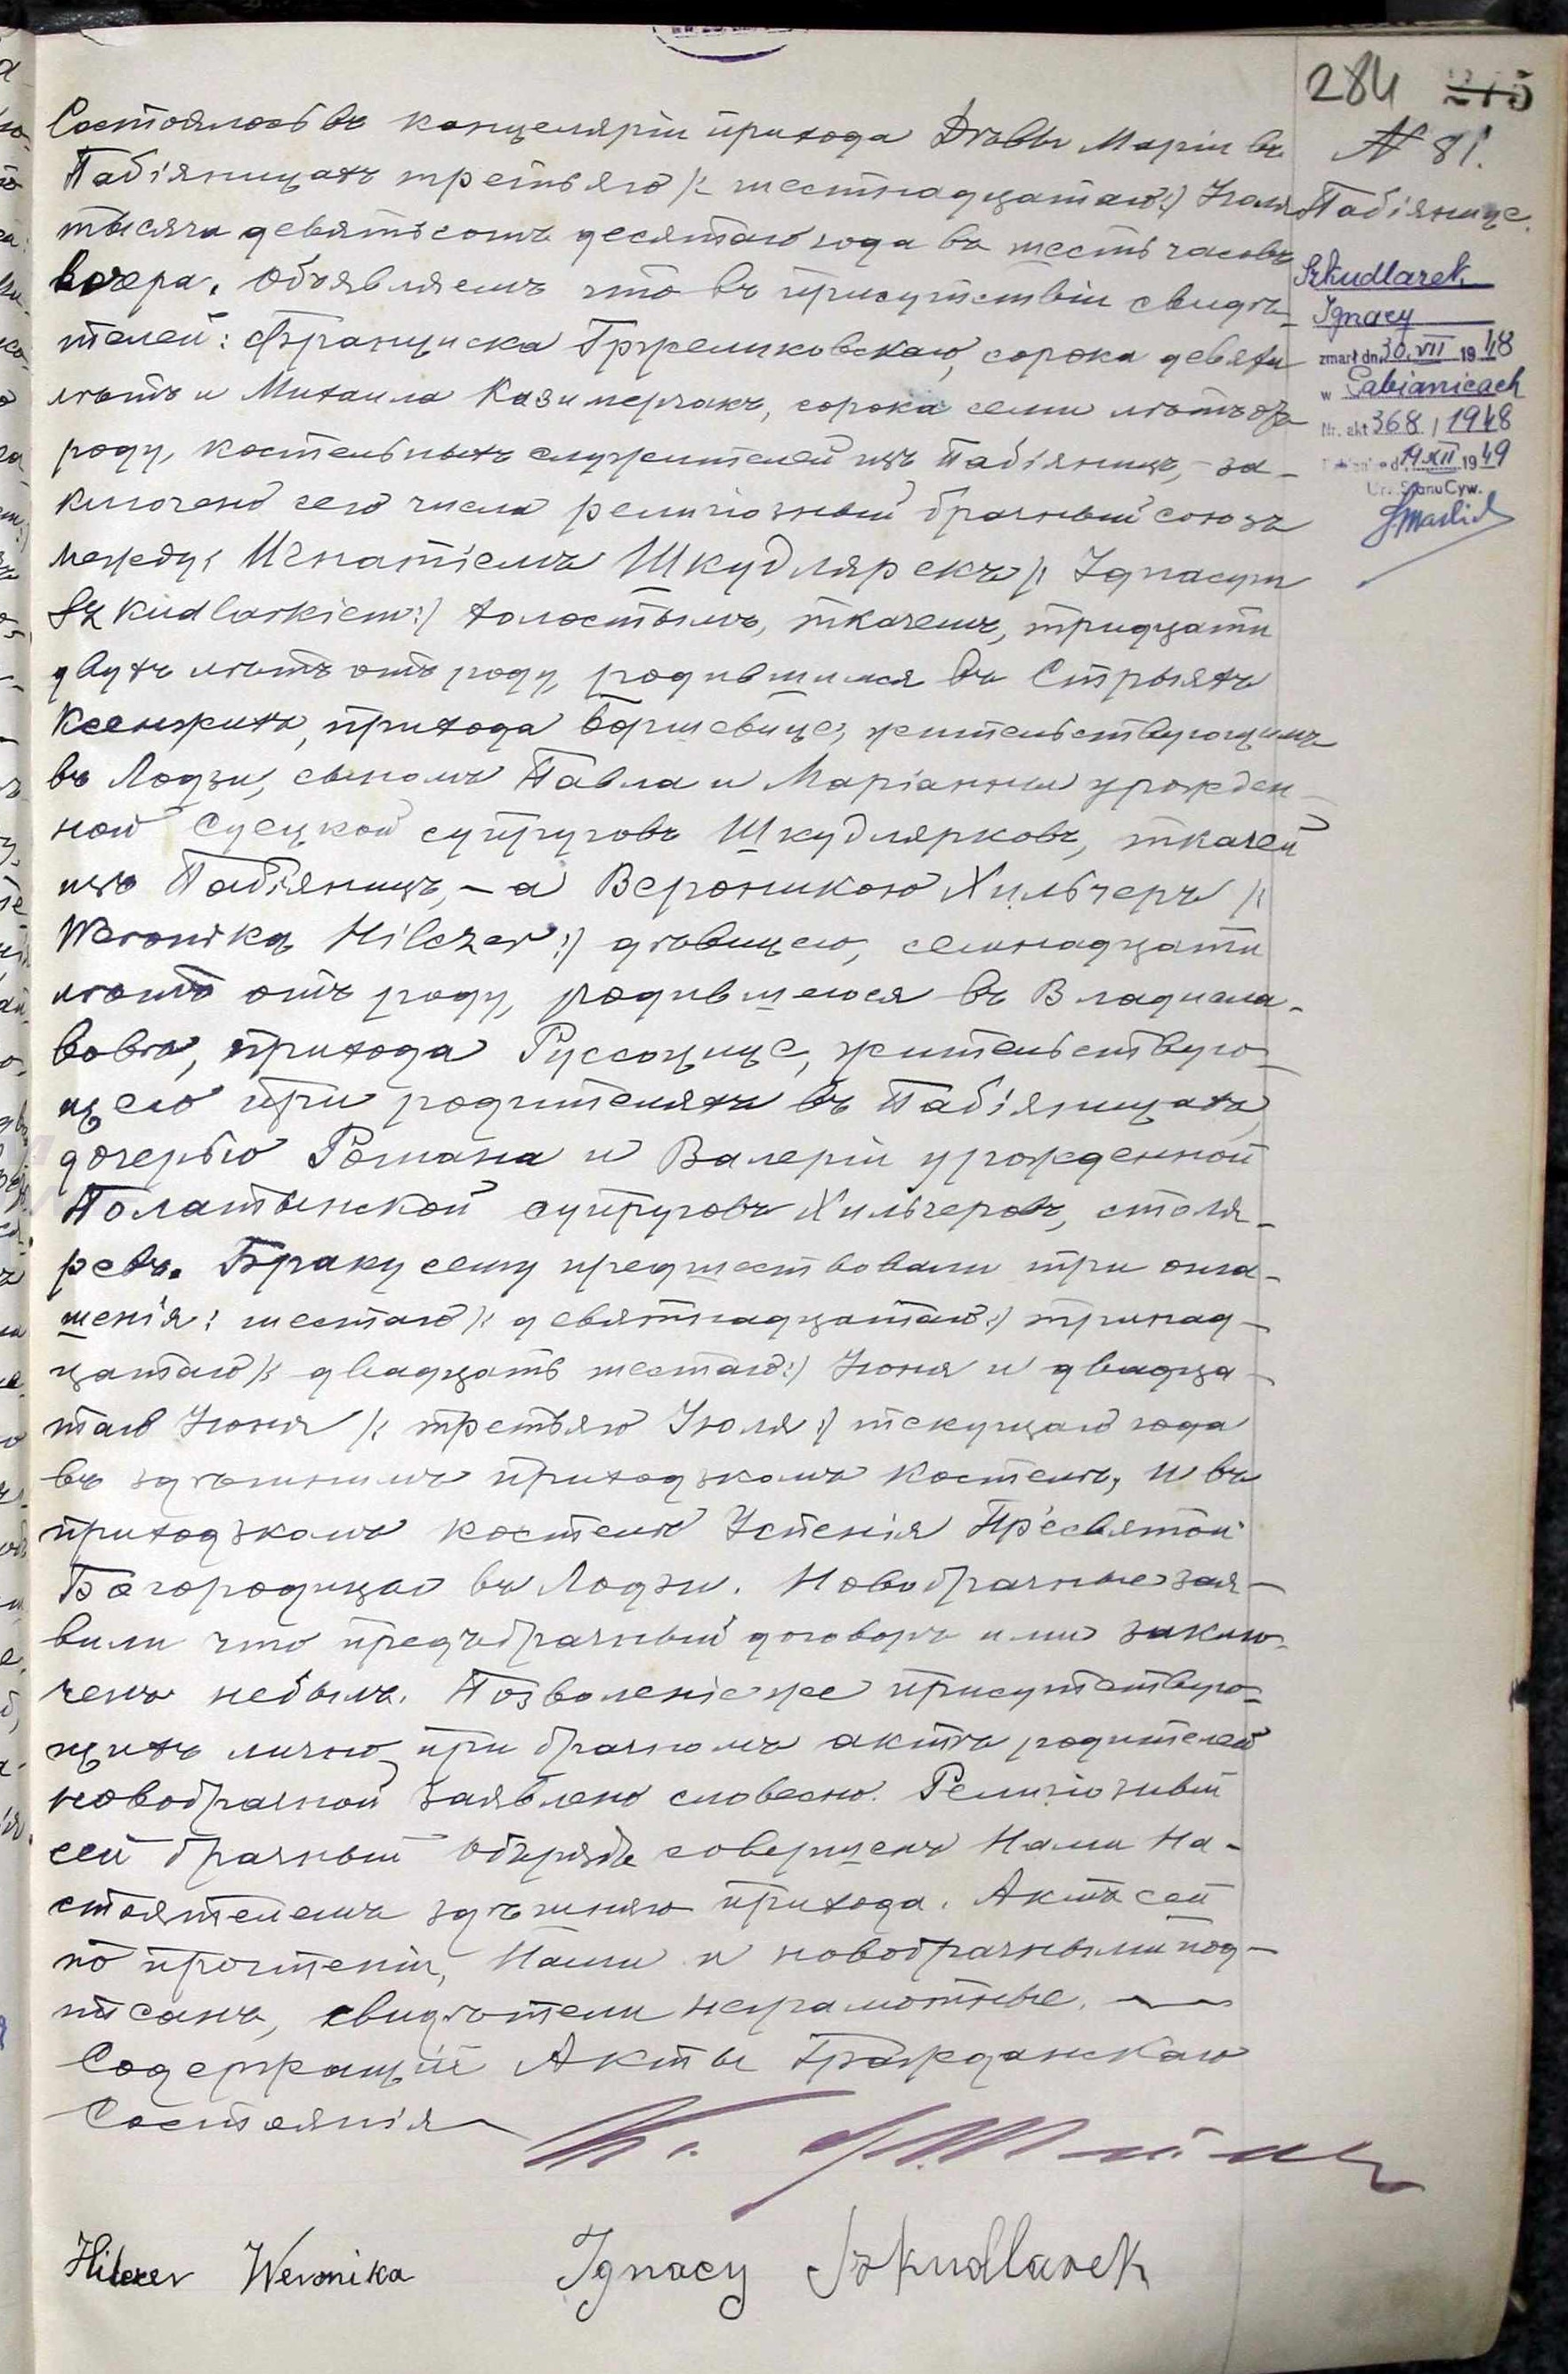 284 275
N 81.
Пабіянице.
Szkudlarek
Ignacy
zmarł dn. 30. VII 1948
w Pabianicach
Nr. akt 368 / 1948
d. 19 XII 1949
Urz. Stanu Cyw.
Состоялось въ канцеляріи прихода Дѣвы Маріи въ
Пабіяницахъ третьяго /: шестнадцатаго :/ Іюля
тысяча девятьсотъ десятаго года въ шесть часовъ
вечера. Объявляемъ что въ присутствіи свидѣ-
телей: Францишка Гржеликовскаго, сорока девяти
лѣтъ и Михаила Казимерчакъ, сорока семи лѣтъ отъ
роду, костельныхъ служителей изъ Пабіяницъ, - за-
ключенъ сего числа религіозный брачный союзъ
между: Игнатіемъ Шкудлярекъ /: Ignacym
Szkudlarkiem :/ холостымъ, ткачемъ, тридцати
двухъ лѣтъ отъ роду, родившимся въ Стрыяхъ
Ксенжихъ, прихода Боршевице, жительствующимъ
въ Лодзи, сыномъ Павла и Маріанны урожден-
ной Сусцкой супруговъ Шкудлярковъ, ткачей
изъ Пабіяницъ, - а Вероникою Хильчеръ /:
Weroniką Hilczer :/ дѣвицею, семнадцати
лѣтъ отъ роду, родившеюся въ Владисла-
вовѣ, прихода Руссоцице, жительствую-
щею при родителяхъ въ Пабіяницахъ,
дочерью Романа и Валеріи урожденной
Полатынской супруговъ Хильчеровъ, столя-
ровъ. Браку сему предшествовали три огла-
шенія: шестаго /: девятнадцатаго :/ тринад-
цатаго /: двадцать шестаго :/ Іюня и двадца-
таго Іюня /: третьяго Іюля :/ текущаго года
въ здѣшнимъ приходзкомъ костелѣ, и въ
приходзкомъ костелѣ Успенія Пресвятой
Богородицы въ Лодзи. Новобрачные зая-
вили что предъбрачный договоръ ими заклю-
ченъ небылъ. Позволеніе же присутствую-
щихъ лично при брачномъ актѣ родителей
новобрачной заявлено словесно. Религіозный
сей брачный обрядъ совершенъ Нами На-
стоятелемъ здѣшняго прихода. Актъ сей
по прочтеніи, Нами и новобрачными под-
писанъ, свидѣтели неграмотные.
Содержащій Акты Гражданскаго
Состоянія
Hilczer Weronika Ignacy Szkudlarek